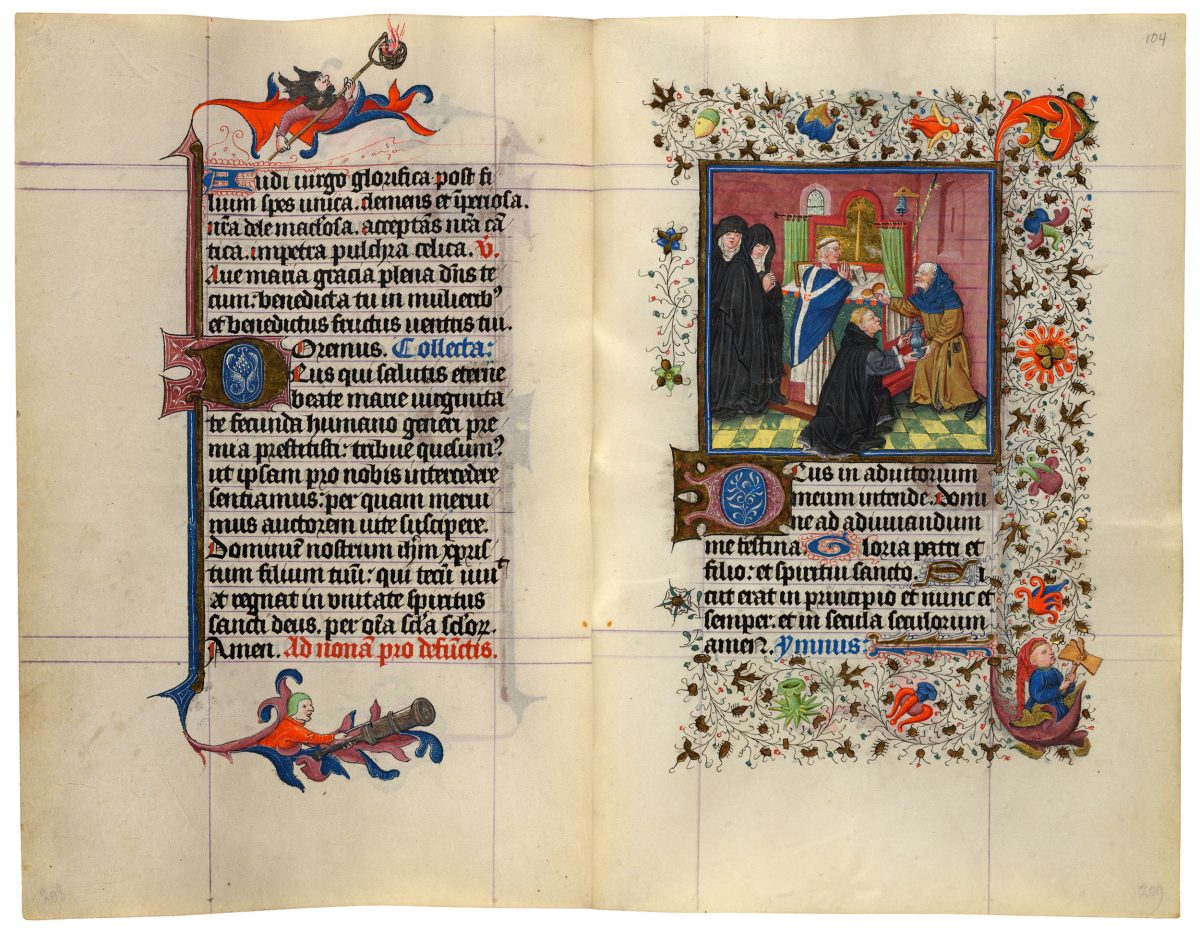 Audi uirgo glorifica post fi
lium spes unica. clemens et īperiosa.
nr̄a dele maclosa. acceptās nr̄a cā
tica. impetra pulchra celica. V̄.
Aue maria gracia plena dn̄s te
cum: benedicta tu in mulierib⁹
et benedictus fructus uentris tui.
Oremus. Collecta:
Deus qui salutis eterne
beate marie uirginita
te fecunda humano generi pre
mia prestitisti: tribue quesum⁹
ut ipsam pro nobis intercedere
sentiamus: per quam merui
mus auctorem uite suscipere.
Dominū nostrum ihm xpris
tum filium tuū: qui tecū uiuit
et regnat in unitate spiritus
sancti deus. per oīa scl̄a scl̄oꝝ.
Amen. Ad nonam pro defūctis.
104
Deus in adiutorium
meum intende. Domi
ne ad adiuuandum
me festina. Gloria patri et
filio: et spiritui sancto. Si
cut erat in principio et nunc et
semper. et in secula seculorum
amen. Ymnus:
208
209